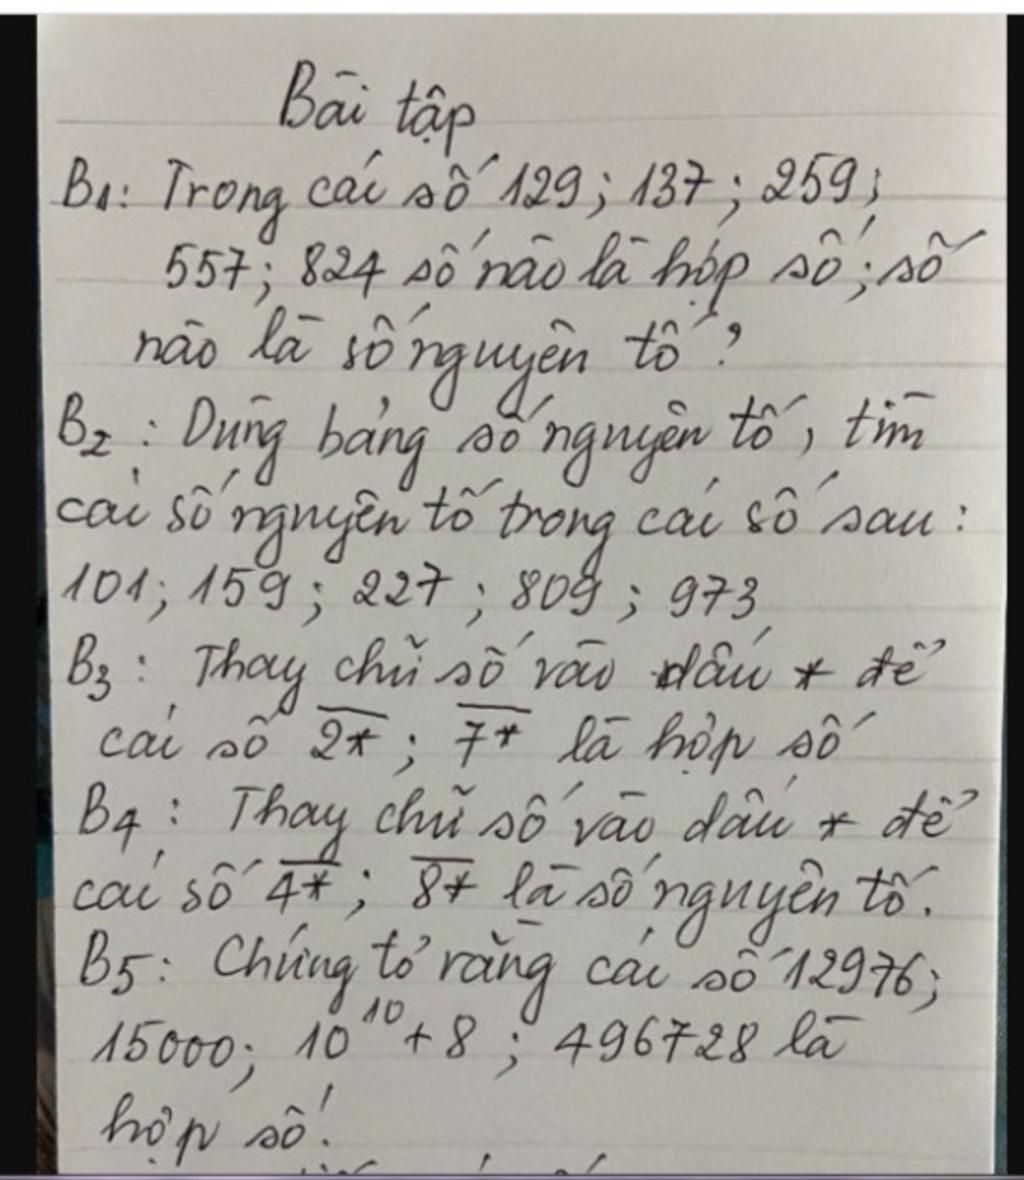 Bài tập
B1: Trong các số 129; 137; 259;
557; 824 số nào là hợp số; số
nào là số nguyên tố?
B2: Dùng bảng số nguyên tố, tìm
các số nguyên tố trong các số sau:
101; 159; 227; 809; 973
B3: Thay chữ số vào dấu * để
các số 2*; 7* là hợp số
B4: Thay chữ số vào dấu * để
các số 4*; 8* là số nguyên tố.
B5: Chứng tỏ rằng các số 12976;
15000; 10¹⁰ + 8; 496728 là
hợp số!